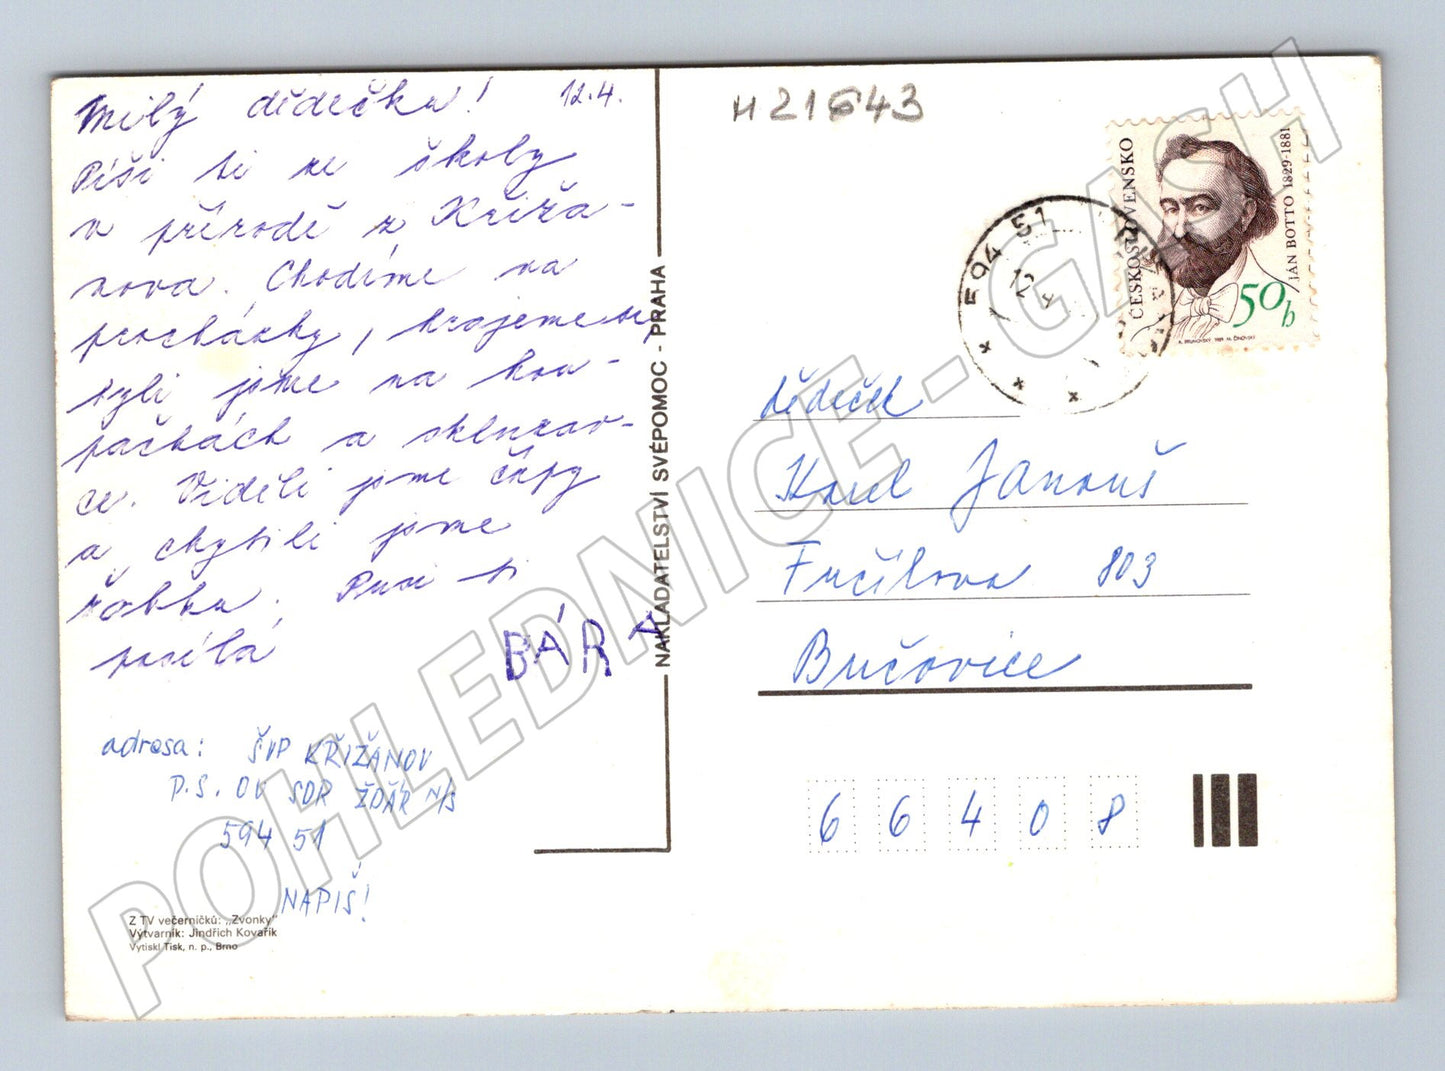 Milý dědečku! 12.4.
Píši ti ze školy
v přírodě z Křiža-
nova. Chodíme na
procházky, hrajeme si
byli jsme na hou-
pačkách a sklouzav-
ce. Viděli jsme čápy
a chytili jsme
žabku. Pusi ti
posílá
BÁRA
adresa: ŠVP KŘIŽANOV
P.S. OV SDR ŽĎÁR n/S
594 51
NAPIŠ!
Z TV večerníčků: „Zvonky“
Výtvarník: Jindřich Kovařík
Vytiskl Tisk, n. p., Brno
NAKLADATELSTVÍ SVÉPOMOC - PRAHA
H21643
ČESKOSLOVENSKO
JÁN BOTTO 1829-1881
50h
594 51
12.4
dědeček
Karel Janouš
Fučíkova 803
Bučovice
66408
POHLEDNICE - GASH